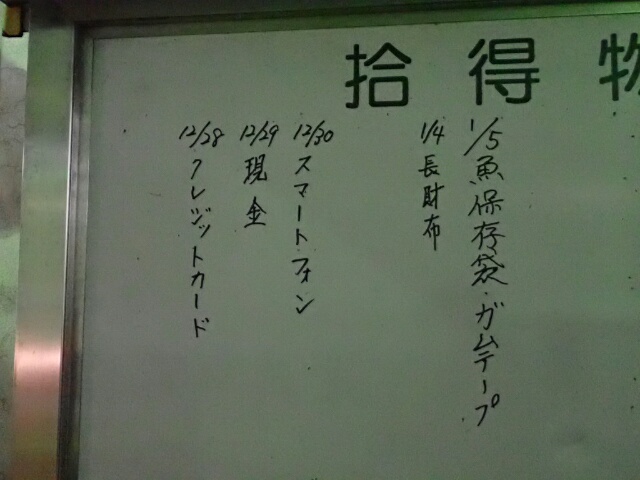 拾得物
1/5 魚保存袋・ガムテープ
1/4 長財布
12/30 スマートフォン
12/29 現金
12/28 クレジットカード